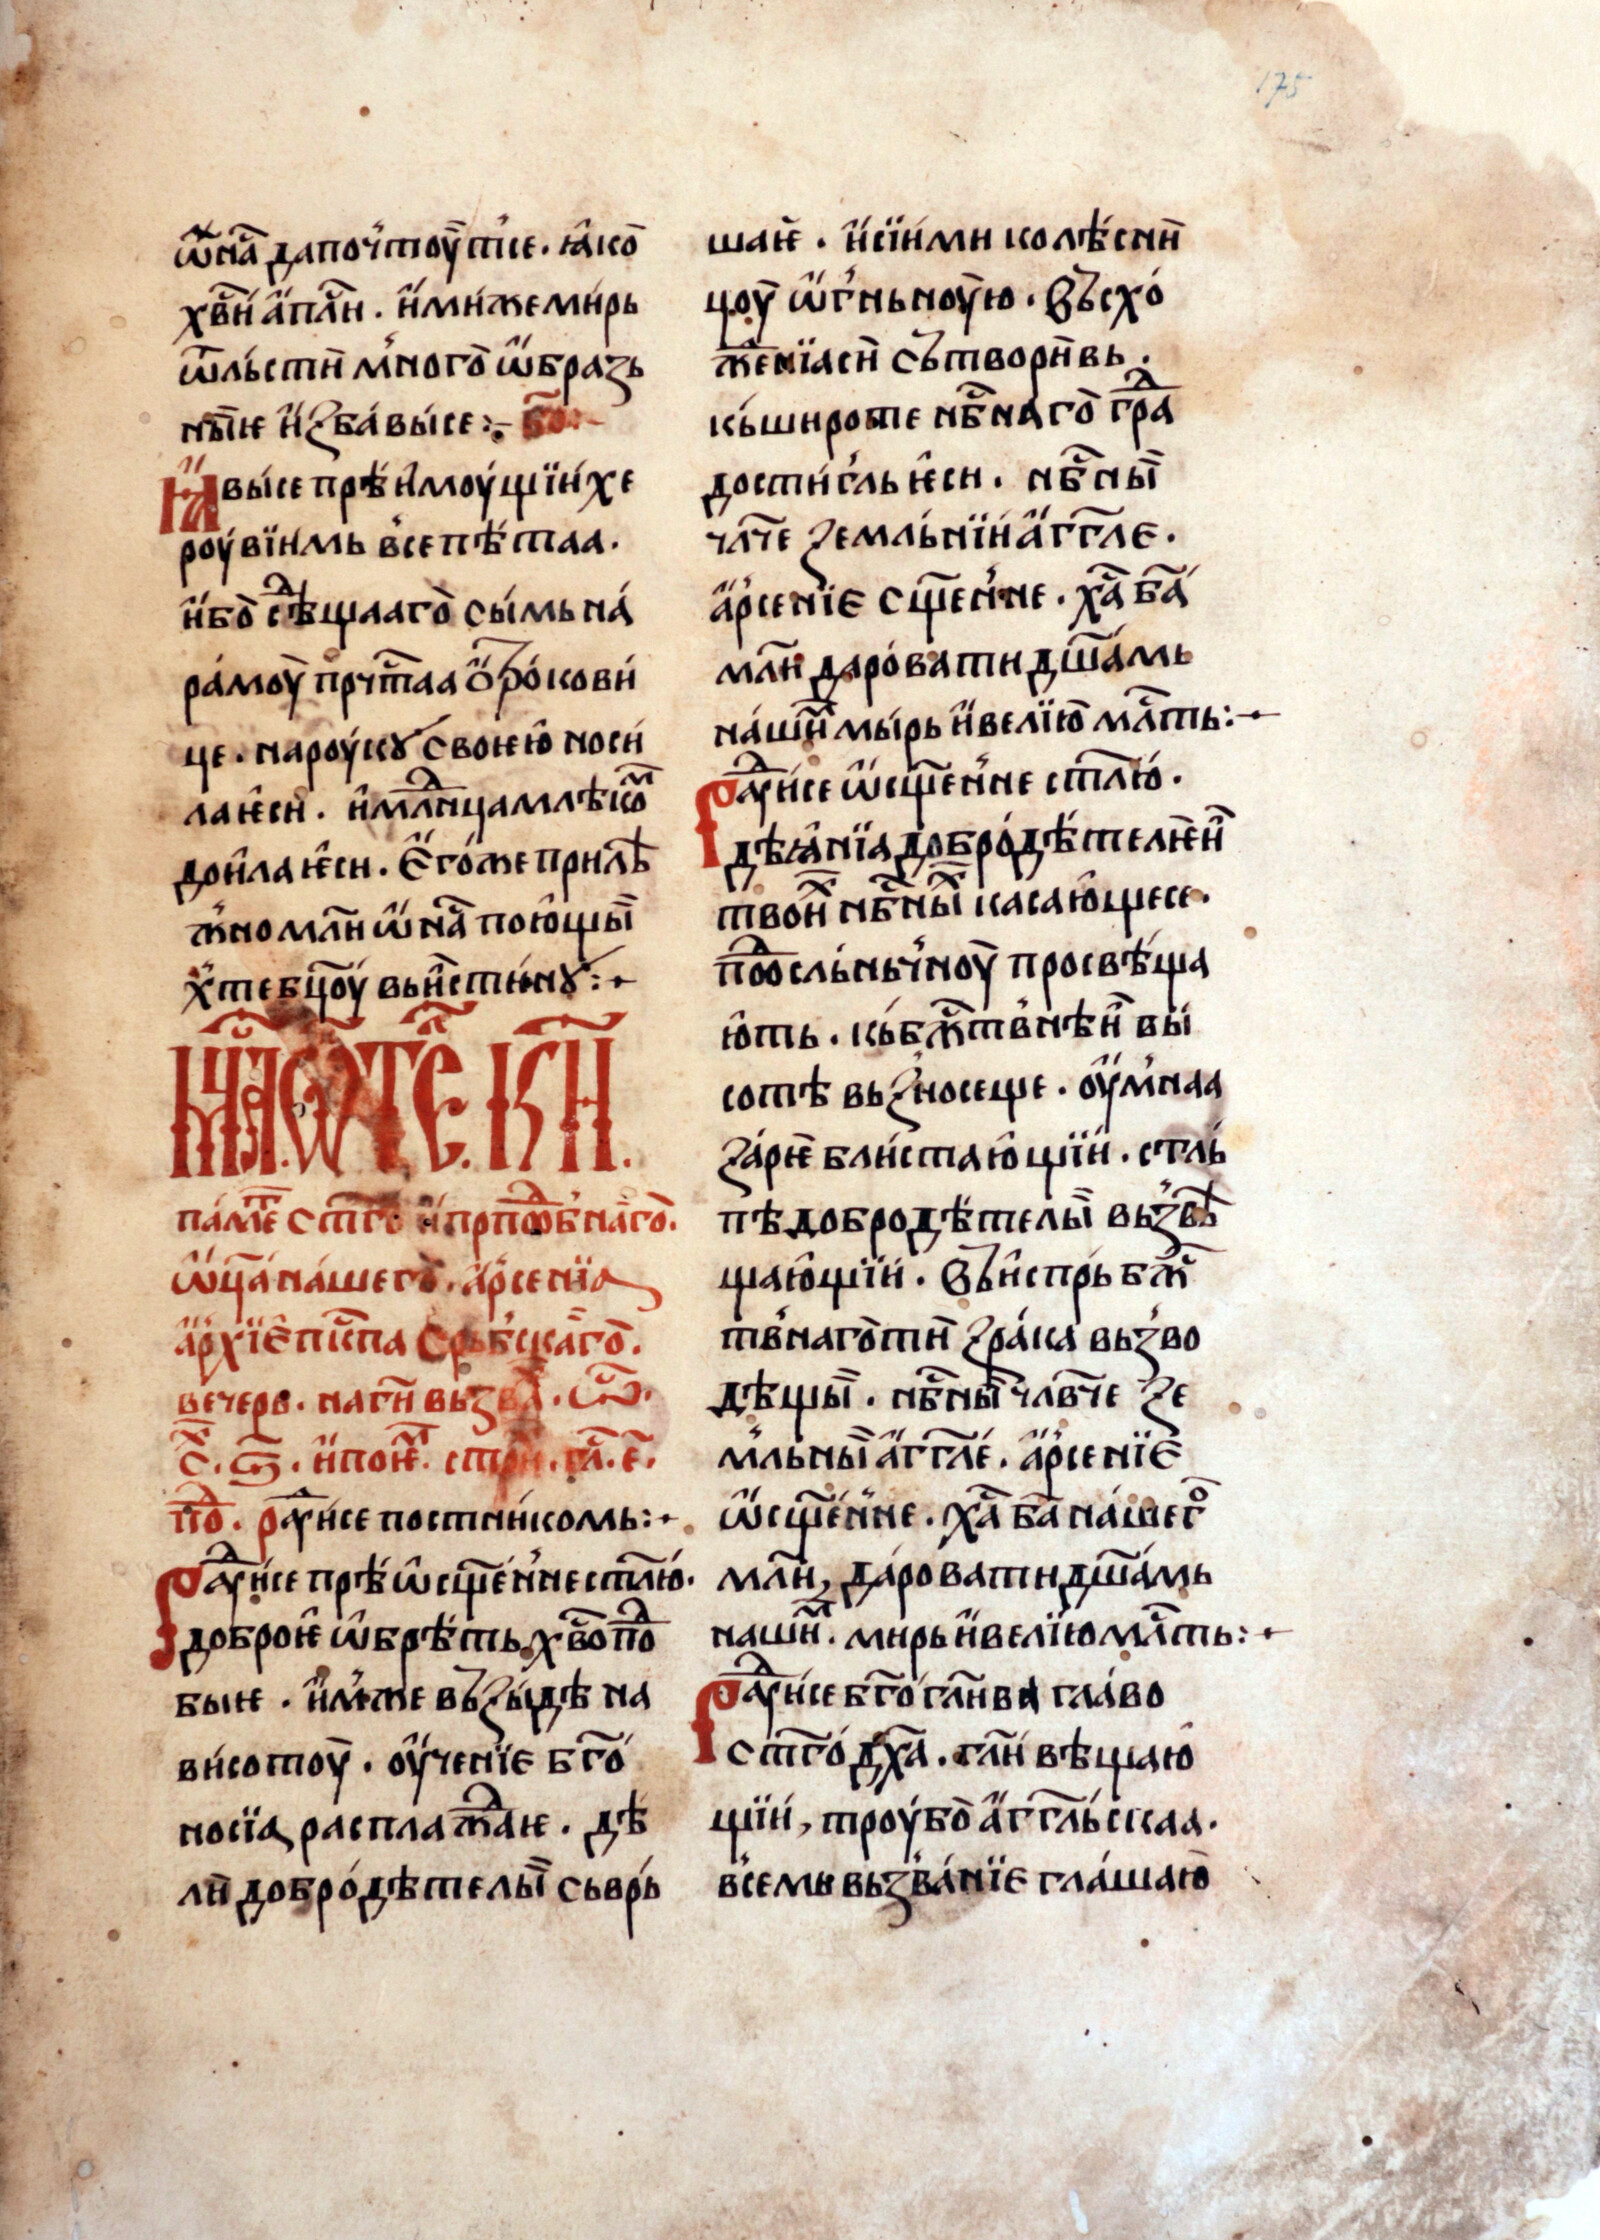 175
ѿ на҇ да почтоуⷮ тсе . ꙗко
хв҇и ап҇ли . имиже мирь
ѿ льсти многоѡбразь
ныѥ избависе :- бо҇ :-
Ꙗвысе прѣимоущїи хе
роувїимь всепѣтаа .
ибо сⷣѣщааго сымь на
рамоу прчⷭтаа ѻтрокови
це . на роукꙋ своѥю носи
ла ѥси . и млⷣнца млѣкоⷨ
доила ѥси . Егоже прилѣ
жно мл҃и ѿ на҇ поющыⷯ
те бц҃оу вьистинꙋ :-
мⷭца . ѡ҆кте . к҃и .
паме҇ ст҃го и прпⷣобнаго .
ѿца нашего . арсенїа
архїепⷭкпа срьбскаго .
вечерь . на ги҃ възва҇ .
и поѥⷨ . стри . гла҇ . е҃ .
поⷣ . раⷣуисе постникомь :-
Раⷣуисе прѣѡсщ҃енне ст҃лю .
доброѥ ѡбрѣть хв҇оⷣпо
быѥ . имже възыде на
висотоу . оученїе бг҃о
носїа расплаⷣжаѥ . дѣ
ли добродѣтелыⷨ сьврь
шаѥ . и сїими колѣсни
цоу ѡгньноую . Въсхо
жⷣенїа си сътворивь .
кь широте нб҇наго граⷣ
достигль ѥси . нб҇ныⷨ
чл҃че земльнїи агг҃ле .
арсенїе сщ҃енне . ха҇ ба҃
мл҃и даровати дш҃амь
нашиⷨ мырь и велїю мл҇ть :-
Раⷣуисе ѡсщ҃енне ст҃лю .
дѣанїа добродѣтелѥи
твоиⷯ нб҇ныⷯ касающесе .
поⷣо сльньчноу просвѣща
ють . кь бж҇твнѣи вы
сотѣ вьзносеще . оумнаа
зарѥ блистающїи . стль
пѣ добродѣтелыⷨ вьзвѣ
щающїи . Въиспрь бж҇
твнаго ти зрака вьзво
дѣщыⷨ . нб҇ныⷨ члв҃че зе
мльныⷨ агг҃ле . арсенїе
ѡсщ҃енне . ха҇ ба҃ нашегⷪ
мл҃и , даровати дш҃амь
нашиⷨ . мирь и велїю мл҇ть :-
Раⷣуисе бг҃огл҃ива главо
ст҃го дх҃а . гл҃и вѣщаю
щїи , троубо агг҃льскаа .
всемь вьзванїе глашаю